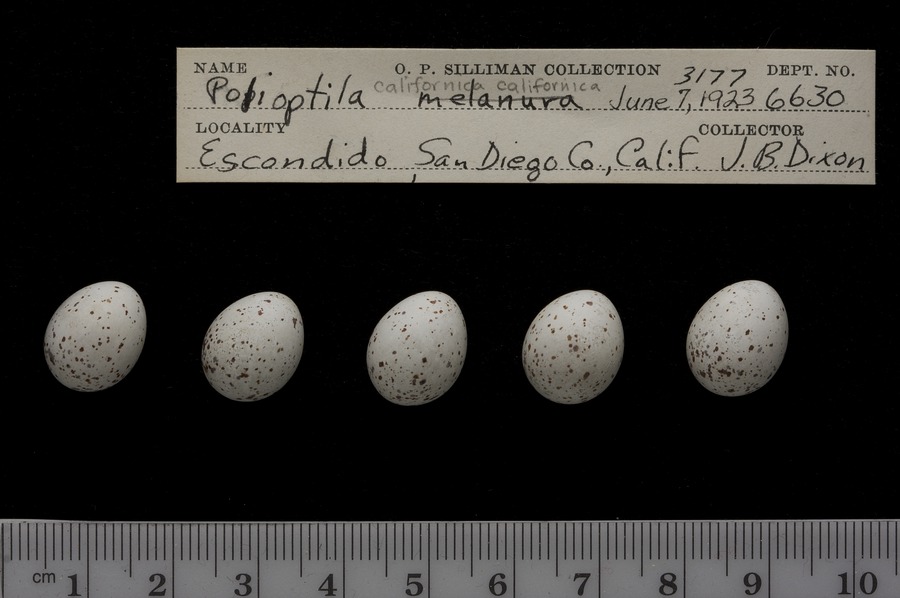 NAME O. P. SILLIMAN COLLECTION 3177 DEPT. NO.
californica californica
Polioptila melanura June 7, 1923 6630
LOCALITY COLLECTOR
Escondido, San Diego Co., Calif. J. B. Dixon
cm 1 2 3 4 5 6 7 8 9 10